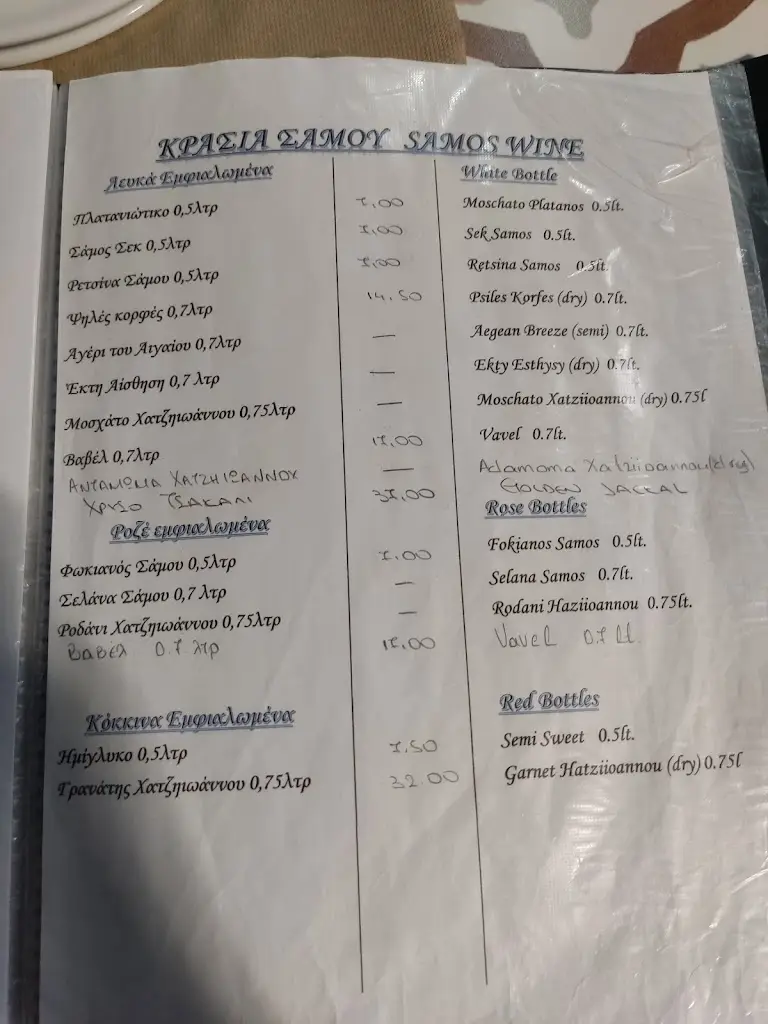 ΚΡΑΣΙΑ ΣΑΜΟΥ SAMOS WINE
Λευκά Εμφιαλωμένα White Bottle
Πλατανιώτικο 0,5λτρ 7,00 Moschato Platanos 0.5lt.
Σάμος Σεκ 0,5λτρ 7,00 Sek Samos 0.5lt.
Ρετσίνα Σάμου 0,5λτρ 7,00 Retsina Samos 0.5lt.
Ψηλές κορφές 0,7λτρ 14.50 Psiles Korfes (dry) 0.7lt.
Αγέρι του Αιγαίου 0,7λτρ — Aegean Breeze (semi) 0.7lt.
Έκτη Αίσθηση 0,7 λτρ — Ekty Esthysy (dry) 0.7lt.
Μοσχάτο Χατζηιωάννου 0,75λτρ — Moschato Xatziioannou (dry) 0.75l
Βαβέλ 0,7λτρ 17,00 Vavel 0.7lt.
ΑΝΤΑΜΩΜΑ ΧΑΤΖΗΙΩΑΝΝΟΥ — Adamoma Xatziioannou(dry)
ΧΡΥΣΟ ΤΣΑΚΑΛΙ 37,00 GOLDEN JACKAL
Ροζέ εμφιαλωμένα Rose Bottles
Φωκιανός Σάμου 0,5λτρ 7.00 Fokianos Samos 0.5lt.
Σελάνα Σάμου 0,7 λτρ — Selana Samos 0.7lt.
Ροδάνι Χατζηιωάννου 0,75λτρ — Rodani Haziioannou 0.75lt.
Βαβέλ 0.7 λτρ 17,00 Vavel 0.7 lt.
Κόκκινα Εμφιαλωμένα Red Bottles
Ημίγλυκο 0,5λτρ 7.50 Semi Sweet 0.5lt.
Γρανάτης Χατζηιωάννου 0,75λτρ 32.00 Garnet Hatziioannou (dry) 0.75l